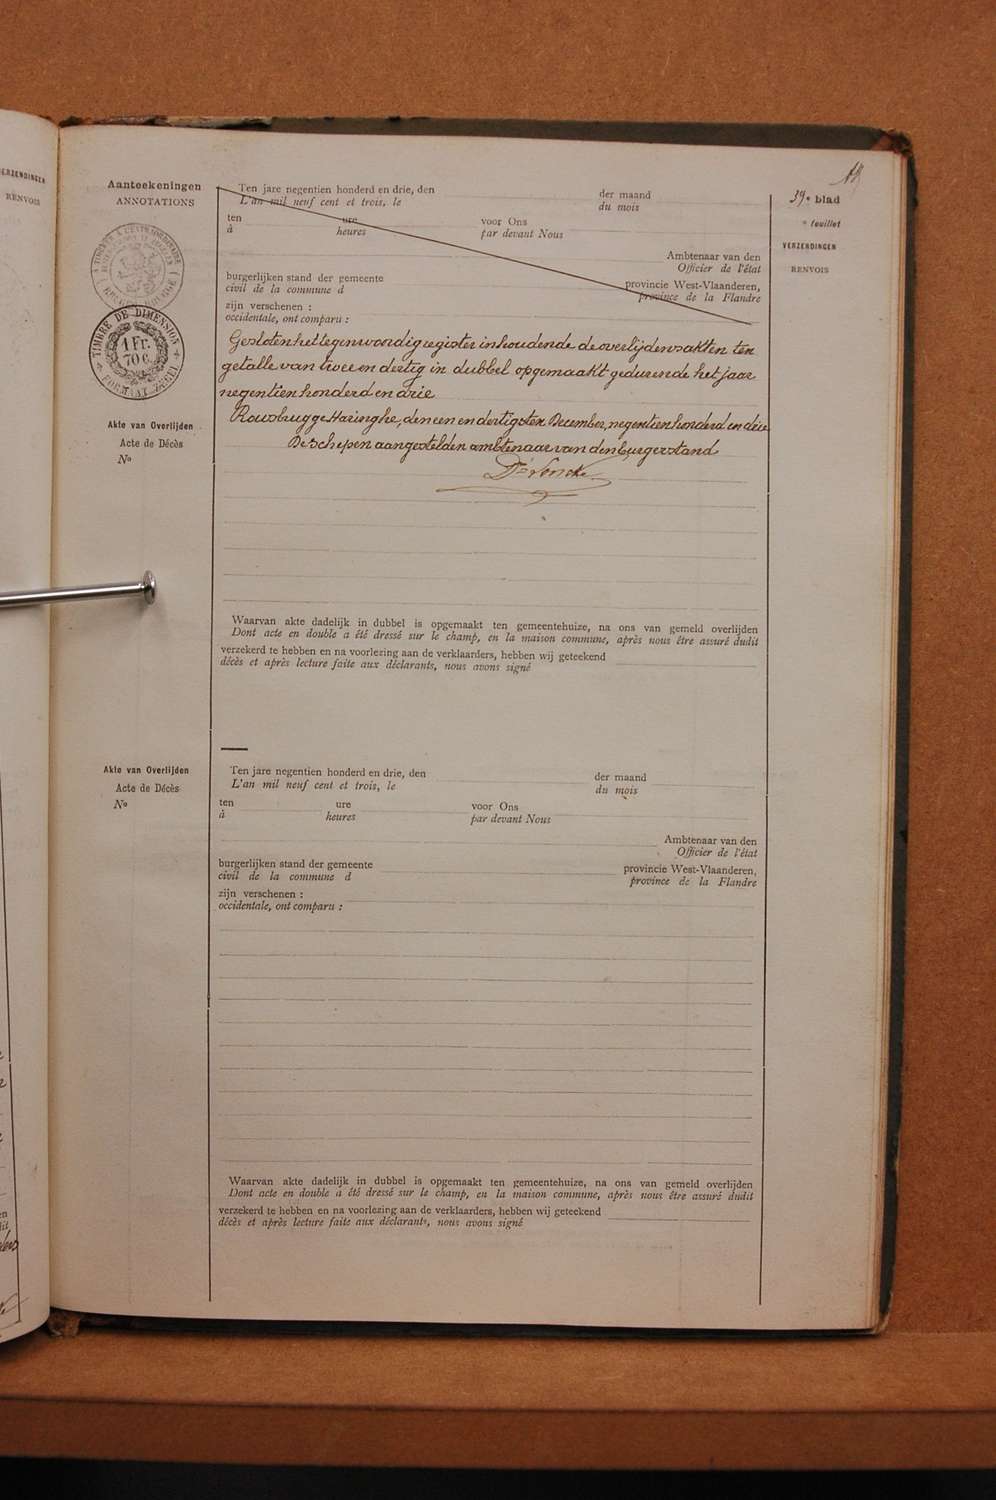 VERZENDINGEN
RENVOIS
Aanteekeningen
ANNOTATIONS
39e blad
e feuillet
VERZENDINGEN
RENVOIS
TIMBRE DE DIMENSION
1 Fr.
70 c.
FORMAAT ZEGEL
Ten jare negentien honderd en drie, den der maand
L'an mil neuf cent et trois, le du mois
ten ure voor Ons
à heures par devant Nous
Ambtenaar van den
Officier de l'état
burgerlijken stand der gemeente provincie West-Vlaanderen,
civil de la commune d province de la Flandre
zijn verschenen :
occidentale, ont comparu :
Gesloten het tegenwoordig register inhoudende de overlijdensakten ten
getalle van twee en dertig in dubbel opgemaakt gedurende het jaar
negentien honderd en drie
Rousbrugge Haringhe, den een en dertigsten December, negentien honderd en drie
De Schepen aangestelden ambtenaar van den burgerstand
Akte van Overlijden
Acte de Décès
No
Waarvan akte dadelijk in dubbel is opgemaakt ten gemeentehuize, na ons van gemeld overlijden
Dont acte en double a été dressé sur le champ, en la maison commune, après nous être assuré dudit
verzekerd te hebben en na voorlezing aan de verklaarders, hebben wij geteekend
décès et après lecture faite aux déclarants, nous avons signé
Akte van Overlijden
Acte de Décès
No
Ten jare negentien honderd en drie, den der maand
L'an mil neuf cent et trois, le du mois
ten ure voor Ons
à heures par devant Nous
Ambtenaar van den
Officier de l'état
burgerlijken stand der gemeente provincie West-Vlaanderen,
civil de la commune d province de la Flandre
zijn verschenen :
occidentale, ont comparu :
Waarvan akte dadelijk in dubbel is opgemaakt ten gemeentehuize, na ons van gemeld overlijden
Dont acte en double a été dressé sur le champ, en la maison commune, après nous être assuré dudit
verzekerd te hebben en na voorlezing aan de verklaarders, hebben wij geteekend
décès et après lecture faite aux déclarants, nous avons signé